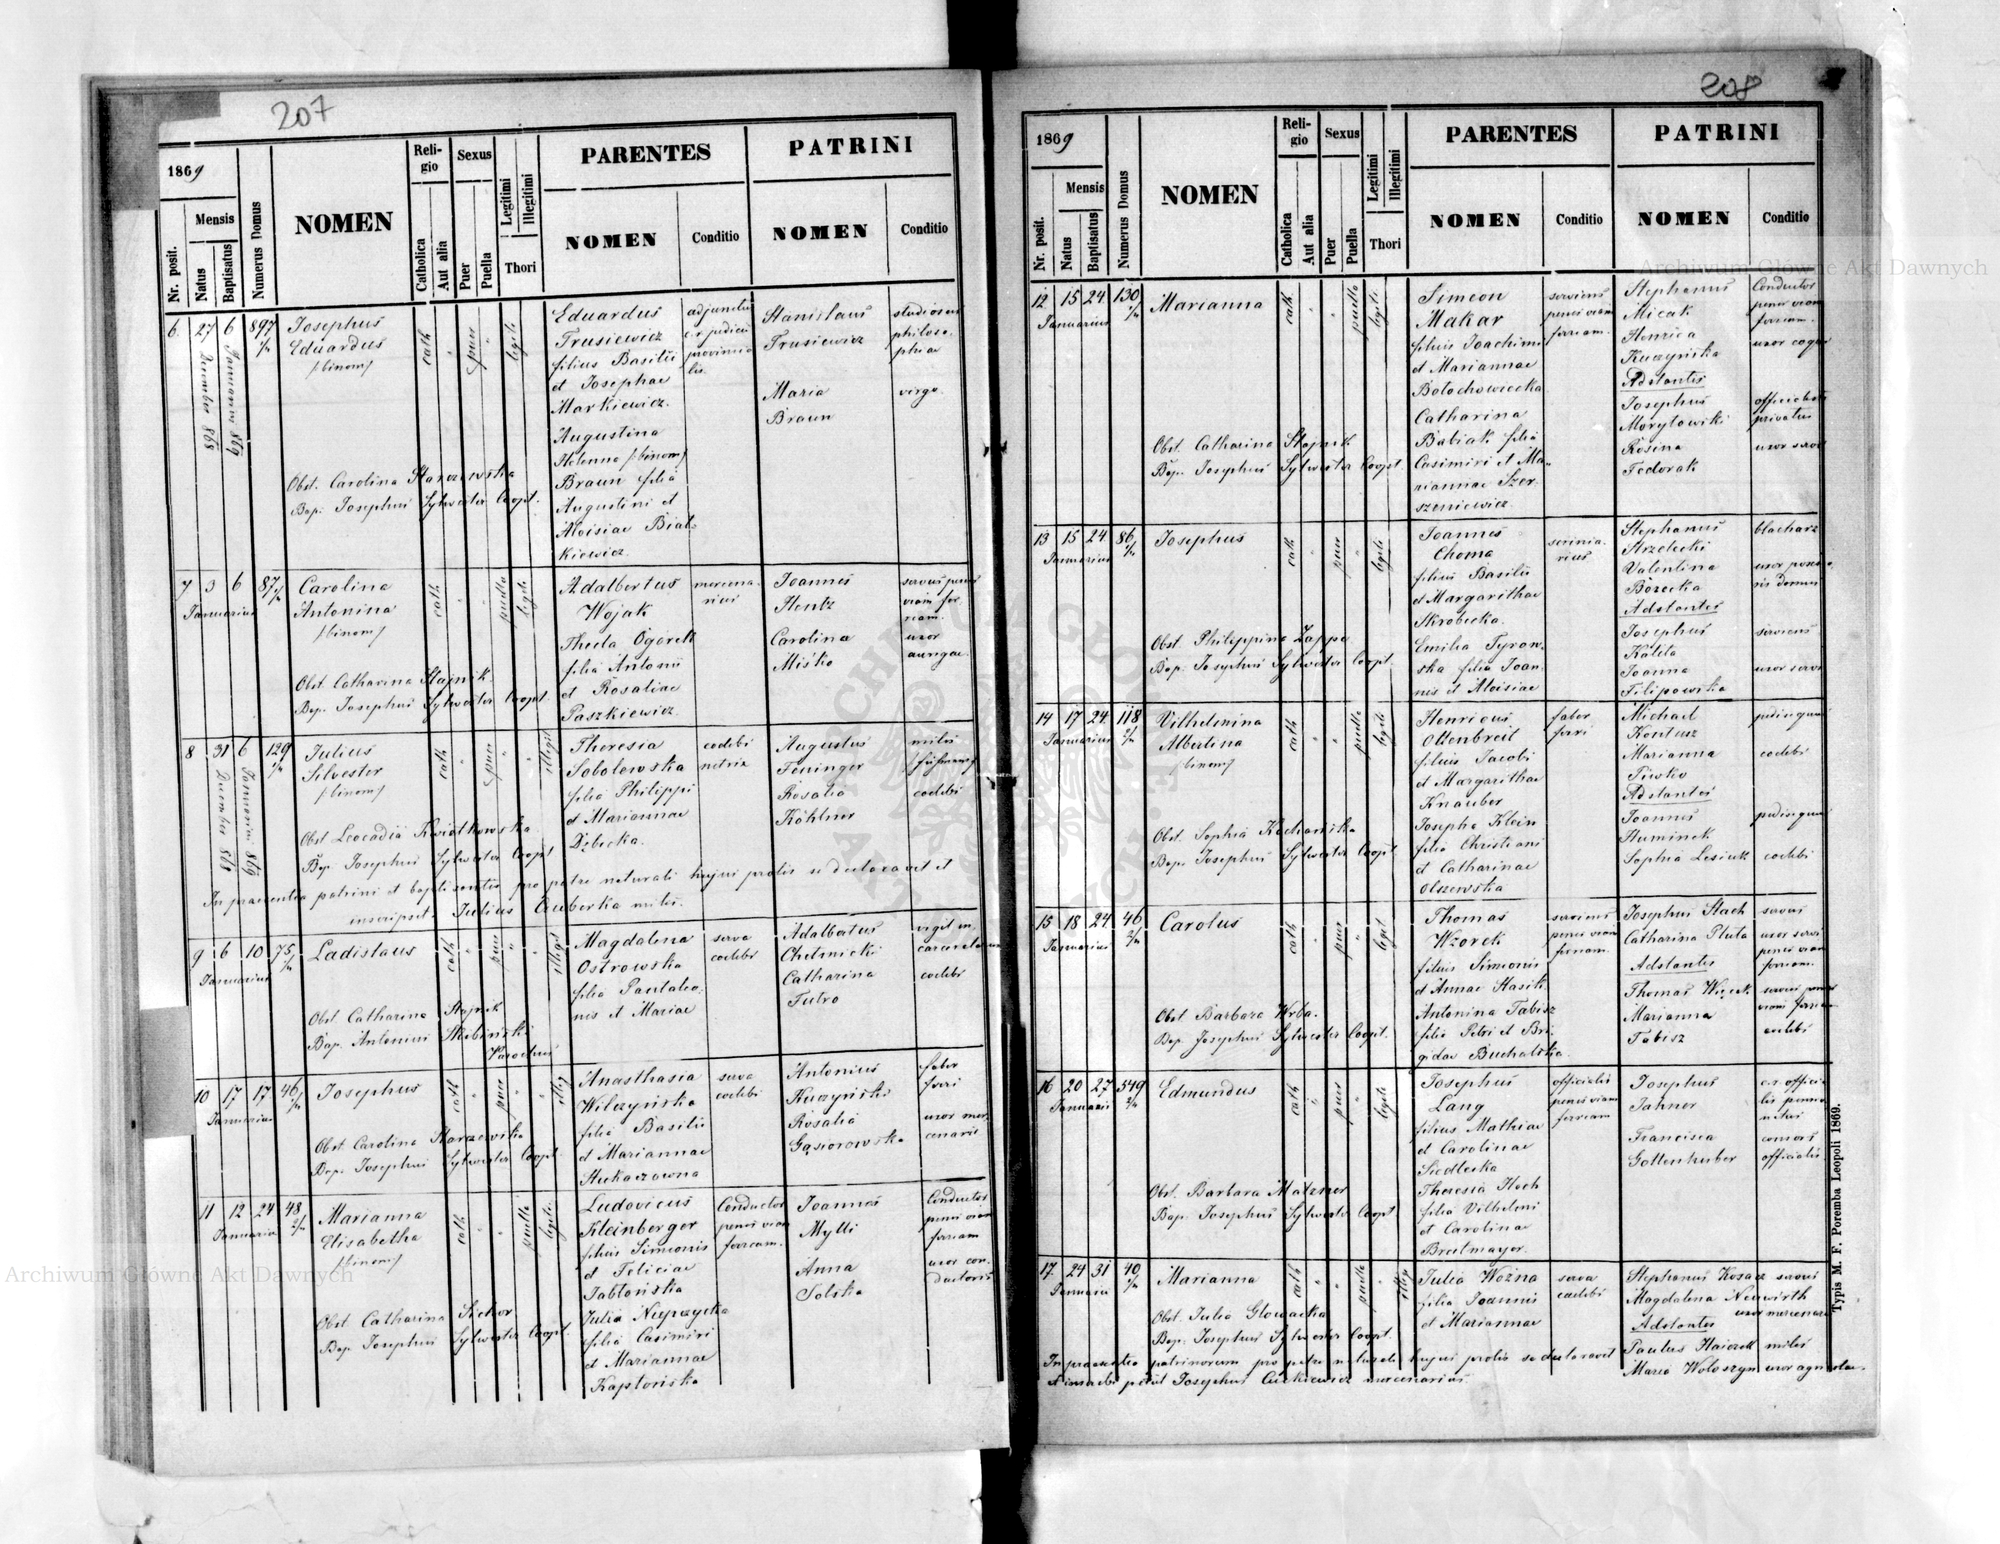 207
1869
Nr. posit.
Mensis
Natus
Baptisatus
Numerus Domus
NOMEN
Religio
Catholica
Aut alia
Sexus
Puer
Puella
Legitimi
Illegitimi
Thori
PARENTES
NOMEN
Conditio
PATRINI
NOMEN
Conditio
6. 27 6 897
Decembr 868
Januarius 869
Josephus
Eduardus
/:binom:/
cath
puer
legit
Obst. Carolina Starzewska
Bap. Josephus Sylwester Coopt.
Eduardus
Trusiewicz
filius Basilii
et Josephae
Markiewicz.
Augustina
Helenna /:binom:/
Braun filia
Augustini et
Aloisiae Biał-
kiewicz.
adjunctus
c.r. judicii
provincia-
lis.
Stanislaus
Trusiewicz
Maria
Braun
studiosus
philoso-
phiae
virgo.
7 3 6 87
Januarius
Carolina
Antonina
/:binom:/
cath
puella
legit
Obst. Catharina Stajnik.
Bap. Josephus Sylwester Coopt.
Adalbertus
Wojak
Thecla Ogorek
filia Antonii
et Rosaliae
Paszkiewicz.
mercena-
rius
Joannes
Hentz
Carolina
Miśko
servus penes
viam fer-
ream.
uxor
aurigae.
8 31 6 129
Decembr 868
Januarius 869
Julius
Silvester
/:binom:/
cath
puer
illegit
Obst. Leocadia Kwiatkowska
Bap. Josephus Sylwester Coopt
In praesentia patrini et baptisantis pro patre naturali hujus prolis se declaravit et
inscripsit. Julius Czuberka miles.
Theresia
Sobolewska
filia Philippi
et Mariannae
Dzbecka.
coelebs
netrix
Augustus
Feninger
Rosalia
Köhlner
miles
coelebs
9 6 10 75
Januarius
Ladislaus
cath
puer
illegit
Obst. Catharina Stajnik
Bap. Antonius Skibiński
Parochus
Magdalena
Ostrowska
filia Pantaleo-
nis et Mariae
serva
coelebs
Adalbertus
Chelmicki
Catharina
Futro
vigil in
coelebs
10 17 17 46
Januarius
Josephus
cath
puer
illeg
Obst. Carolina Starzewska
Bap. Josephus Sylwester Coopt.
Anasthasia
Wilczyńska
filia Basilii
et Mariannae
Hukaczowna
serva
coelebs
Antonius
Kuczyński
Rosalia
Gąsiorowska
faber
ferri
uxor mer-
cenarii
11 12 24 48
Januarius
Marianna
Elisabetha
/:binom:/
cath
puella
legit.
Obst. Catharina Sichor
Bap. Josephus Sylwester Coopt.
Ludovicus
Kleinberger
filius Simeonis
et Feliciae
Jabłońska
Julia Nieprzycka
filia Casimiri
et Mariannae
Kaptońska
Conductor
penes viam
ferream.
Joannes
Mylli
Anna
Solska
Conductor
penes viam
ferream
uxor con-
ductoris
208
1869
Nr. posit.
Mensis
Natus
Baptisatus
Numerus Domus
NOMEN
Religio
Catholica
Aut alia
Sexus
Puer
Puella
Legitimi
Illegitimi
Thori
PARENTES
NOMEN
Conditio
PATRINI
NOMEN
Conditio
12 15 24 130
Januarius
Marianna
cath
puella
legit.
Obst. Catharina Stajnik
Bap. Josephus Sylwester Coopt.
Simeon
Makar
filius Joachimi
et Mariannae
Bołochowiecka
Catharina
Babiak filia
Casimiri et Ma-
riannae Szer-
szeniewicz.
serviens
penes viam
ferream.
Stephanus
Micak
Henrica
Kuczyńska
Adstantes
Josephus
Morytowski
Rosina
Fedorak
Conductor
penes viam
ferream.
officialis
privatus
13 15 24 86
Januarius
Josephus
cath
puer
legit.
Obst. Philippina Zappe
Bap. Josephus Sylwester Coopt.
Joannes
Choma
filius Basilii
et Margarithae
Skrobecka.
Emilia Tyrow-
ska filia Joan-
nis et Aloisiae
scrinia-
rius
Stephanus
Strzelecki
Valentina
Borecka
Adstantes
Josephus
Kalita
Joanna
Filipowska
blacharz
serviens
14 17 24 118
Januarius
Vilhelmina
Albertina
/:binom:/
cath
puella
legit
Obst. Sophia Kochańska
Bap. Josephus Sylwester Coopt
Henricus
Oltenbreit
filius Jacobi
et Margarithae
Knauber
Josepha Klein
filia Christiani
et Catharinae
Olszewska
faber
ferri
Michael
Kontusz
Marianna
Piwko
Adstantes
Joannes
Huminek
Sophia Lesiuk
coelebs
coelebs
15 18 24 46
Januarius
Carolus
cath
puer
legit
Obst. Barbara Wrba.
Bap. Josephus Sylwester Coopt.
Thomas
Wzorek
filius Simeonis
et Annae Hasik
Antonina Tabisz
filia Petri et Bri-
gidae Buchalska.
serviens
penes viam
ferream.
Josephus Stach
Catharina Pluta
Adstantes
Thomas Więcek
Marianna
Tabisz
servus
uxor servi
penes viam
ferream.
servus penes
viam ferream
coelebs
16 20 27 549
Januarii
Edmundus
cath
puer
legit
Obst. Barbara Matzner
Bap. Josephus Sylwester Coopt
Josephus
Lang
filius Mathiae
et Carolinae
Siedlecka
Theresia Hoch
filia Vilhelmi
et Carolinae
Breitmayer.
officialis
penes viam
ferream
Josephus
Jahner
Francisca
Gottenhuber
consors
officialis
17. 24 31 40
Januarii
Marianna
cath
puella
illeg
Obst. Julia Głowacka
Bap. Josephus Sylwester Coopt.
In praesentia patrinorum pro patre naturali hujus prolis se declaravit
et inscribi petiit Josephus Cićkiewicz mercenarius.
Julia Woźna
filia Joannis
et Mariannae
serva
coelebs
Stephanus Kosacz servus
Magdalena Neuwirth
uxor mercenarii
Adstantes
Paulus Haiczek miles
Maria Wołoszyn
Typis M. F. Poremba Leopoli 1869.
Archiwum Główne Akt Dawnych
Archiwum Główne Akt Dawnych
ARCHIWUM GŁÓWNE AKT DAWNYCH